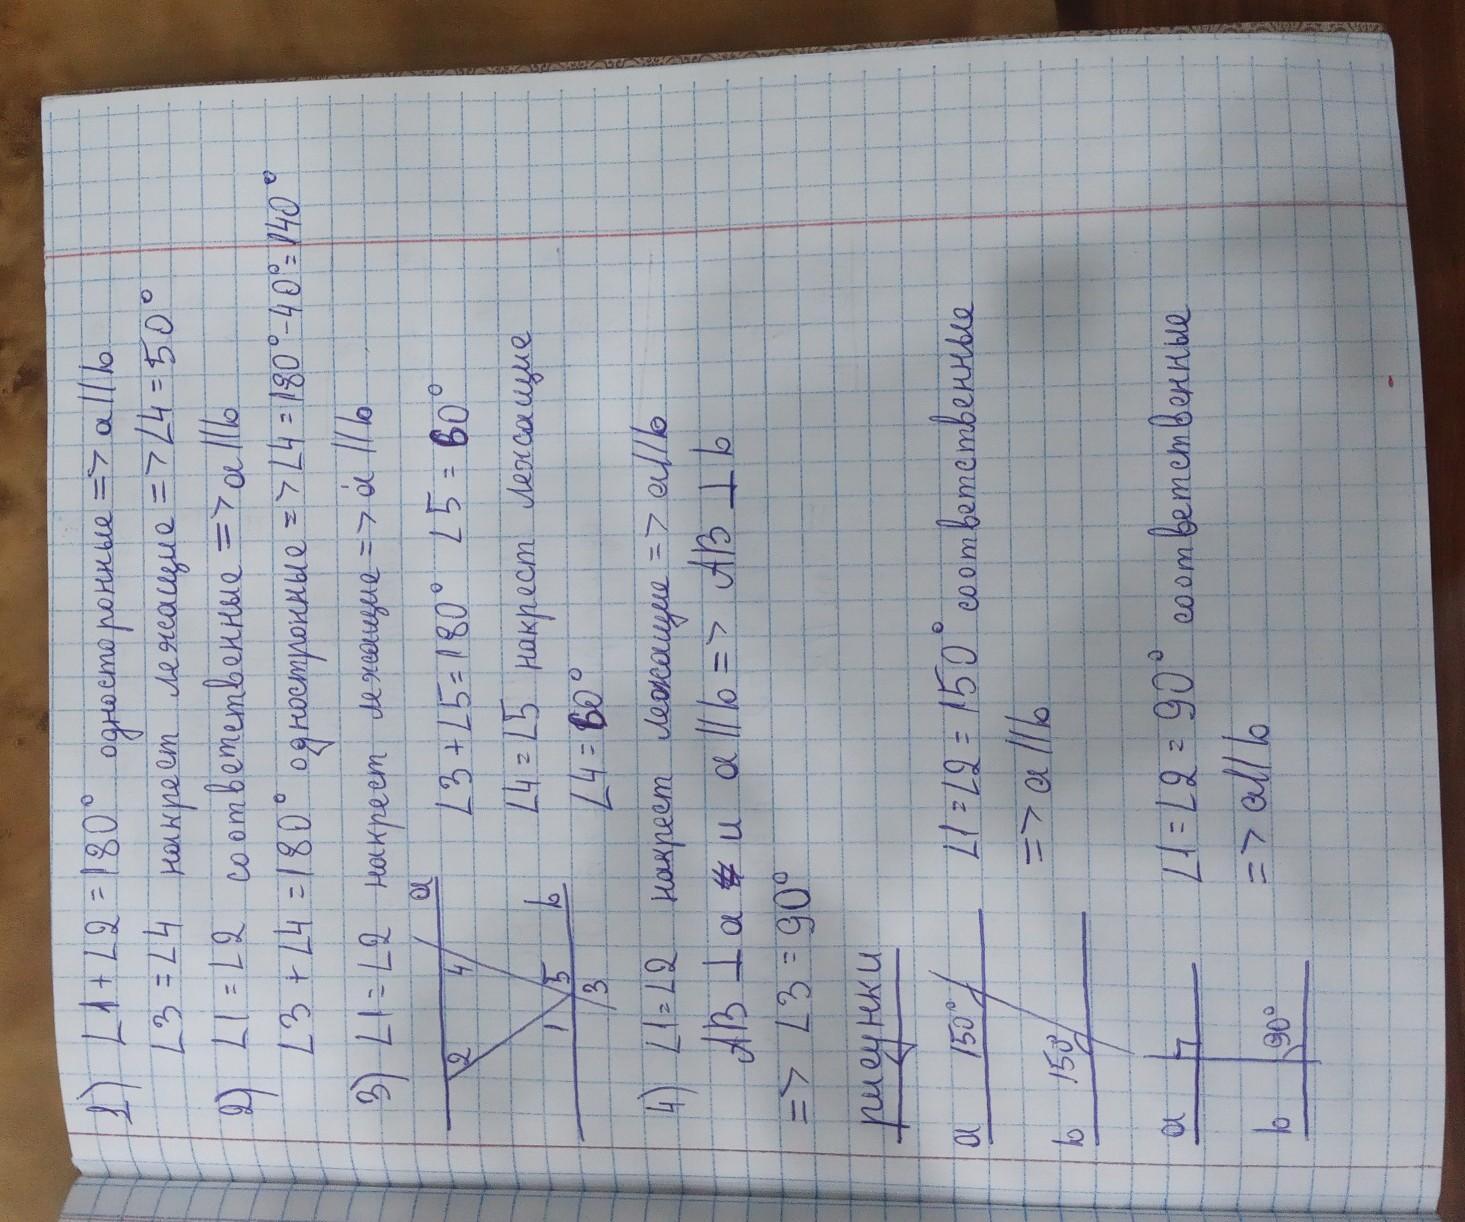 1) ∠1 + ∠2 = 180° односторонные => a || b
∠3 = ∠4 накрест лежащие => ∠4 = 50°
2) ∠1 = ∠2 соответственные => a || b
∠3 + ∠4 = 180° одностронные => ∠4 = 180° - 40° = 140°
3) ∠1 = ∠2 накрест лежащие => a || b
a
2 4
1 5 b
3
∠3 + ∠5 = 180° ∠5 = 60°
∠4 = ∠5 накрест лежащие
∠4 = 60°
4) ∠1 = ∠2 накрест лежащие => a || b
AB ⊥ a и a || b => AB ⊥ b
=> ∠3 = 90°
рисунки
a 150° ∠1 = ∠2 = 150° соответственные
b 150° => a || b
a ∠1 = ∠2 = 90° соответственные
b 90° => a || b